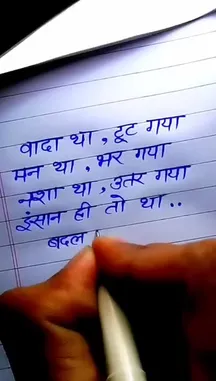 वादा था , टूट गया
मन था , भर गया
नशा था , उतर गया
इंसान ही तो था..
बदल